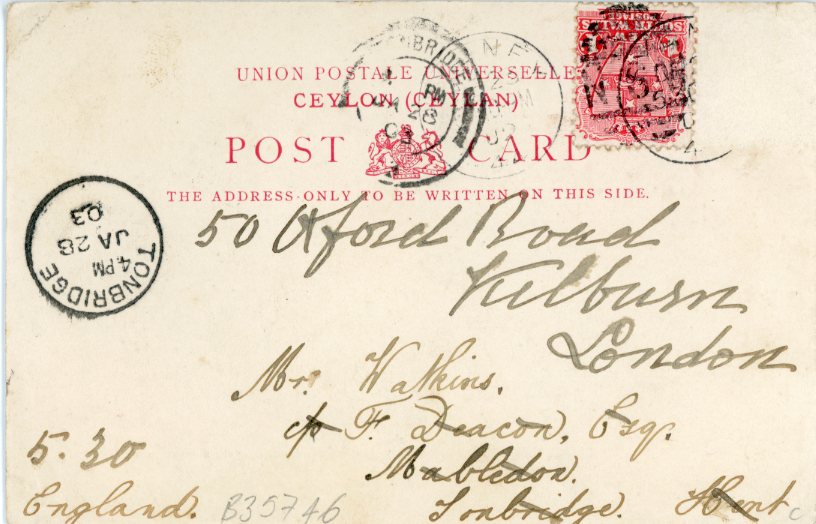 UNION POSTALE UNIVERSELLE
CEYLON (CEYLAN)
POST CARD
THE ADDRESS ONLY TO BE WRITTEN ON THIS SIDE.
TONBRIDGE
4 PM
JA 28
03
BRIDGE
PM
JA 28
03
50 Oxford Road
Kilburn
London
Mr. Watkins,
c/o F. Deacon, Esq.
Mabledon.
Tonbridge. Kent
5.30
England. B35746